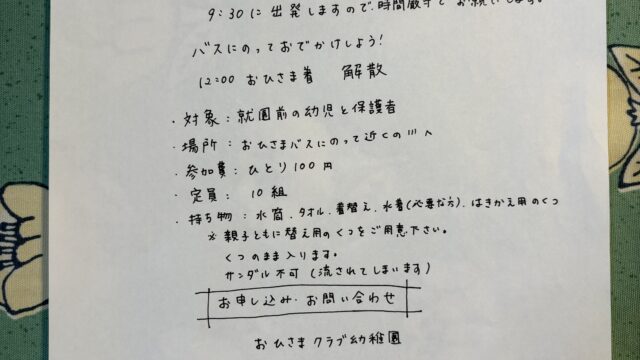 9:30に出発しますので、時間厳守でお願いします。
バスにのっておでかけしよう!
12:00 おひさま着 解散
・対象:就園前の幼児と保護者
・場所:おひさまバスにのって近くの川へ
・参加費:ひとり100円
・定員:10組
・持ち物:水筒、タオル、着替え、水着(必要な方)、はきかえ用のくつ
※親子ともに替え用のくつをご用意下さい。
くつのまま入ります。
サンダル不可(流されてしまいます)
お申し込み・お問い合わせ
おひさまクラブ幼稚園